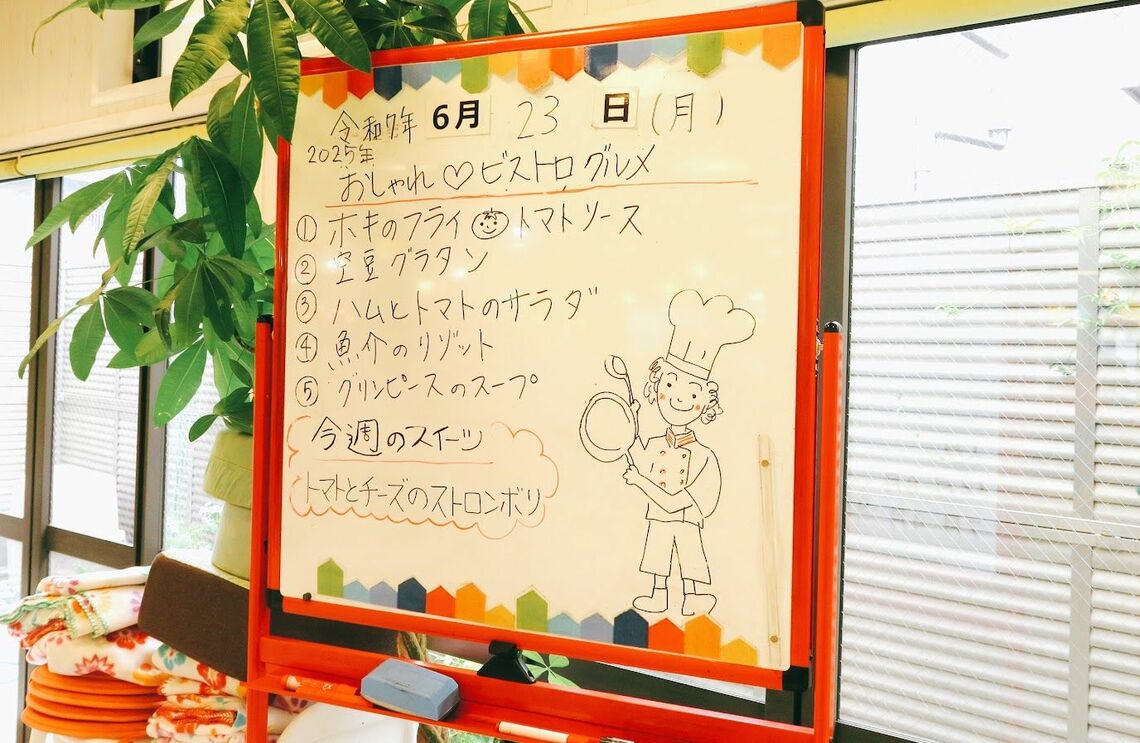 令和7年 6月 23 日 (月)
2025年
おしゃれ♡ビストログルメ
① ホキのフライ トマトソース
② 空豆グラタン
③ ハムとトマトのサラダ
④ 魚介のリゾット
⑤ グリンピースのスープ
今週のスイーツ
トマトとチーズのストロンボリ